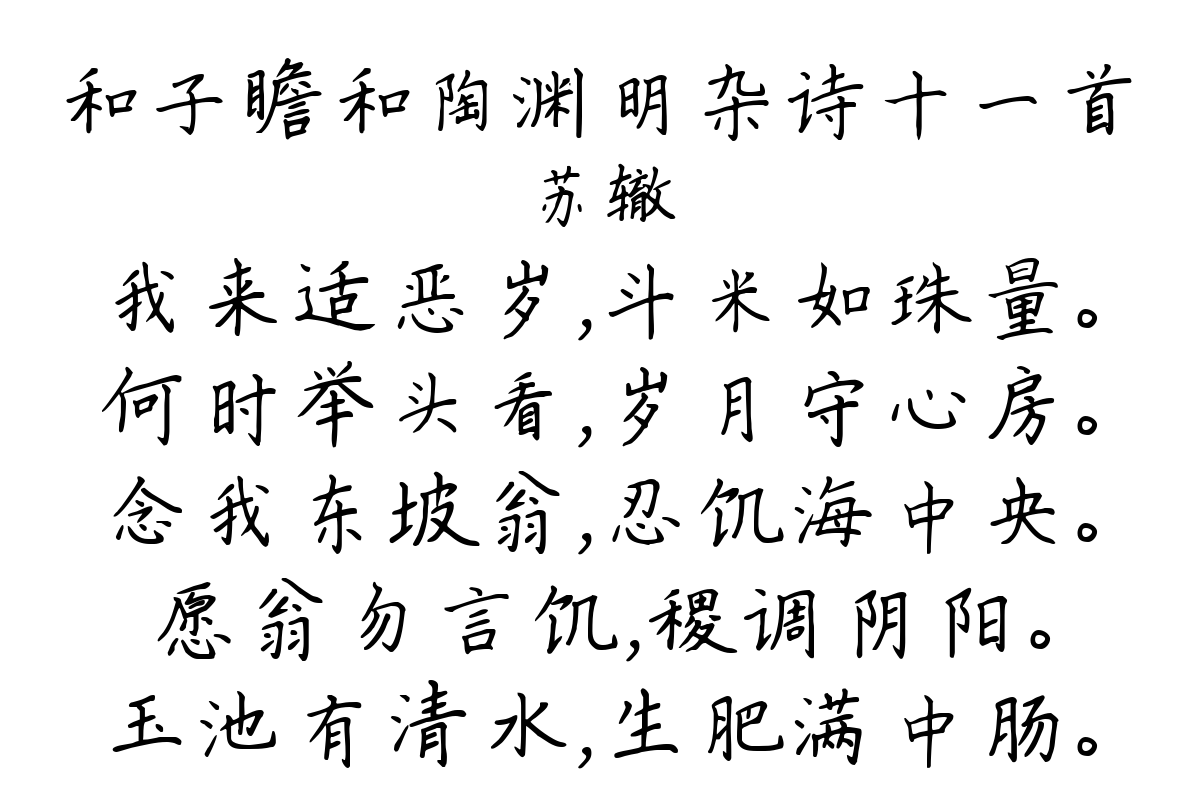 和子瞻和陶渊明杂诗十一首
苏辙
我来适恶岁,斗米如珠量。
何时举头看,岁月守心房。
念我东坡翁,忍饥海中央。
愿翁勿言饥,稷调阴阳。
玉池有清水,生肥满中肠。